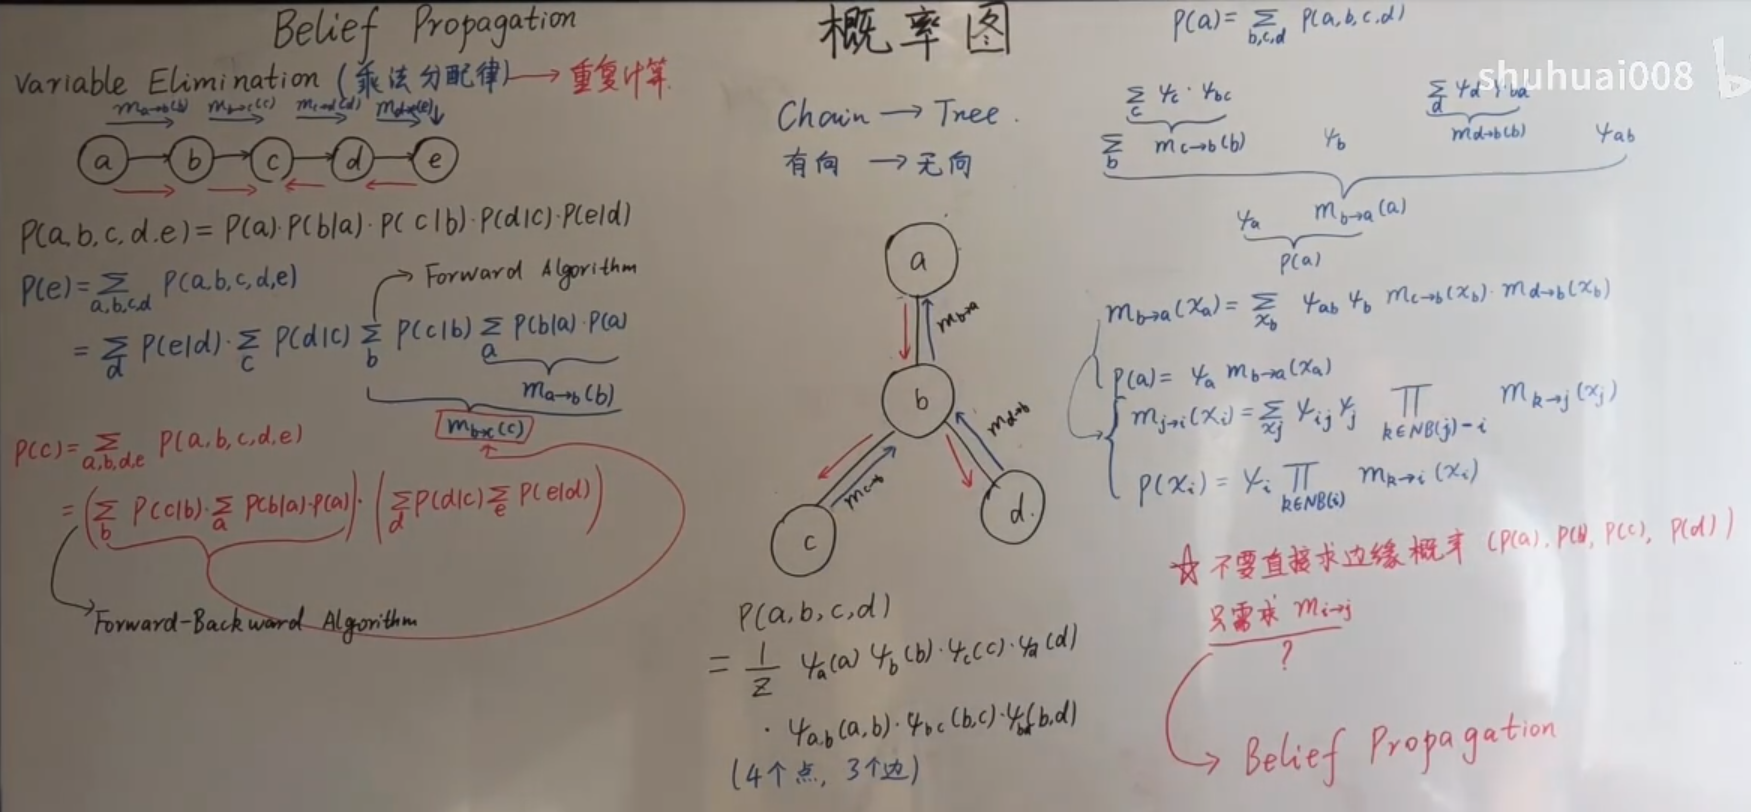 Belief Propagation
Variable Elimination (乘法分配律) → 重复计算
m_{a→b}(b) m_{b→c}(c) m_{c→d}(d) m_{d→e}(e)
a → b → c → d → e
P(a,b,c,d.e) = P(a)·P(b|a)·P(c|b)·P(d|c)·P(e|d)
P(e) = Σ_{a,b,c,d} P(a,b,c,d,e)
→ Forward Algorithm
= Σ_d P(e|d)·Σ_c P(d|c) Σ_b P(c|b) Σ_a P(b|a)·P(a)
m_{a→b}(b)
m_{b→c}(c)
P(c) = Σ_{a,b,d,e} P(a,b,c,d,e)
= (Σ_b P(c|b)·Σ_a P(b|a)·P(a))·(Σ_d P(d|c) Σ_e P(e|d))
Forward-Backward Algorithm
概率图
Chain → Tree.
有向 → 无向
a
m_{b→a}
b
m_{d→b}
m_{c→b}
c
d.
P(a,b,c,d)
= 1/Z ψ_a(a) ψ_b(b)·ψ_c(c)·ψ_d(d)
· ψ_{a,b}(a,b)·ψ_{bc}(b,c)·ψ_{bd}(b,d)
(4个点, 3个边)
P(a) = Σ_{b,c,d} P(a,b,c,d)
shuhuai008 b
Σ_c ψ_c·ψ_{bc} Σ_d ψ_d·ψ_{bd}
Σ_b m_{c→b}(b) ψ_b m_{d→b}(b) ψ_{ab}
ψ_a m_{b→a}(a)
P(a)
m_{b→a}(x_a) = Σ_{x_b} ψ_{ab} ψ_b m_{c→b}(x_b)·m_{d→b}(x_b)
P(a) = ψ_a m_{b→a}(x_a)
m_{j→i}(x_i) = Σ_{x_j} ψ_{ij} ψ_j ∏_{k∈NB(j)-i} m_{k→j}(x_j)
P(x_i) = ψ_i ∏_{k∈NB(i)} m_{k→i}(x_i)
☆ 不要直接求边缘概率 (P(a), P(b), P(c), P(d))
只需求 m_{i→j}
?
Belief Propagation